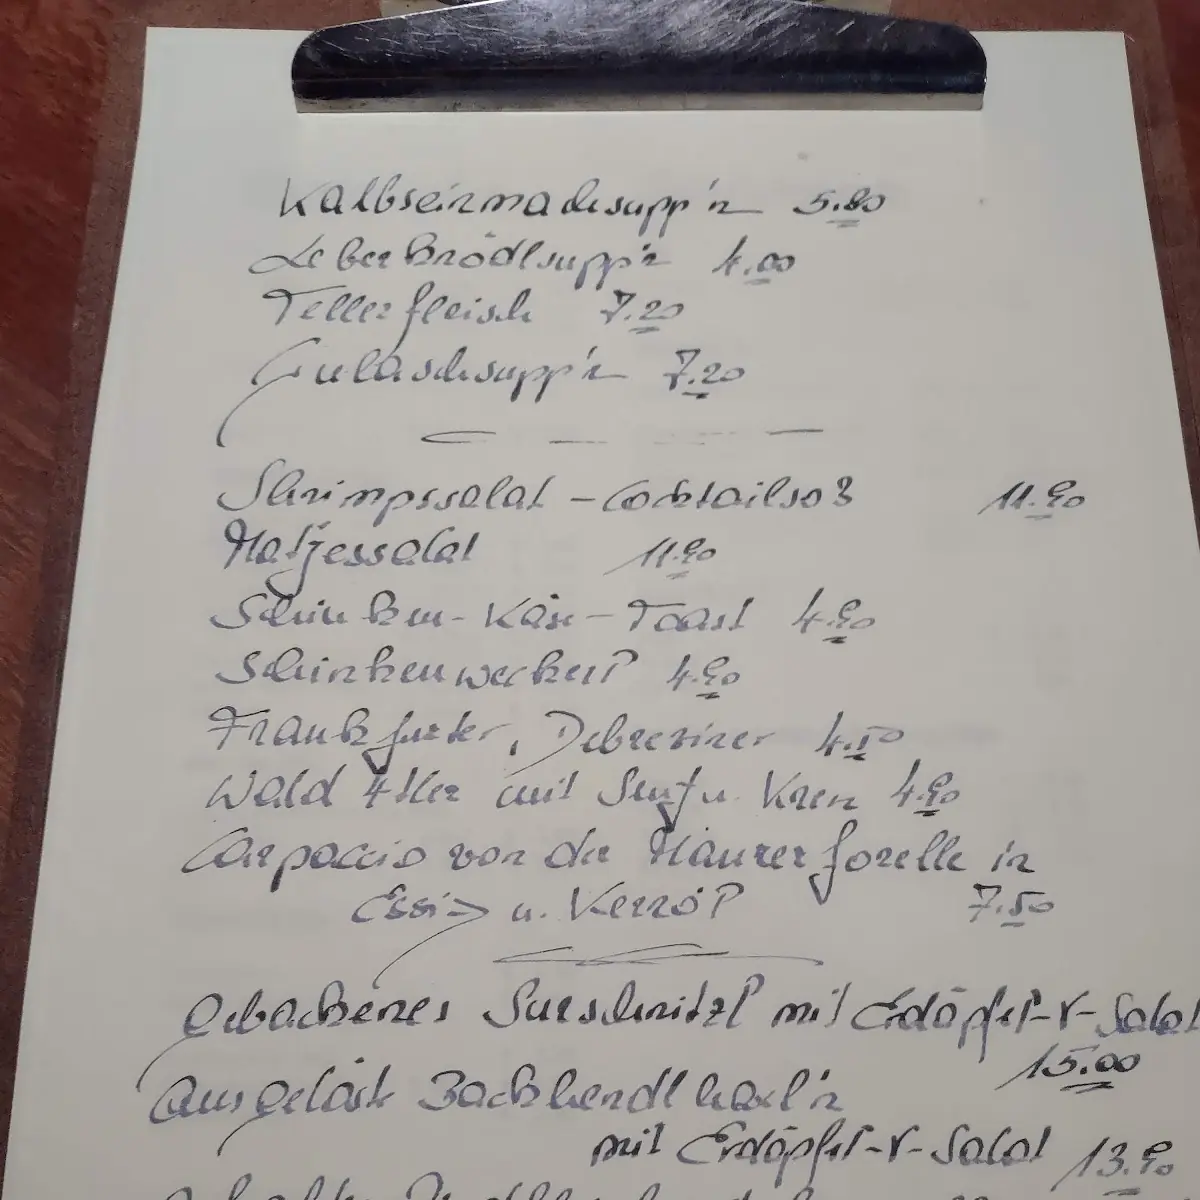 Kalbseinmachsupp'n 5.80
Leberknödlsupp'n 4.00
Tellerfleisch 7.20
Gulaschsupp'n 7.20
Shrimpssalat - Cocktailsoß 11.90
Matjessalat 11.90
Schinken-Käse-Toast 4.90
Schinkenweckerl 4.90
Frankfurter, Debreziner 4.50
Wald 4tler mit Senf u. Kren 4.90
Carpaccio von der Maurerforelle in
Essig u. Kernöl 7.50
Gebackenes Surschnitzl mit Erdöpfel-V-Salat
15.00
Ausgelöste Backhendlhaxl'n
mit Erdöpfel-V-Salat 13.90